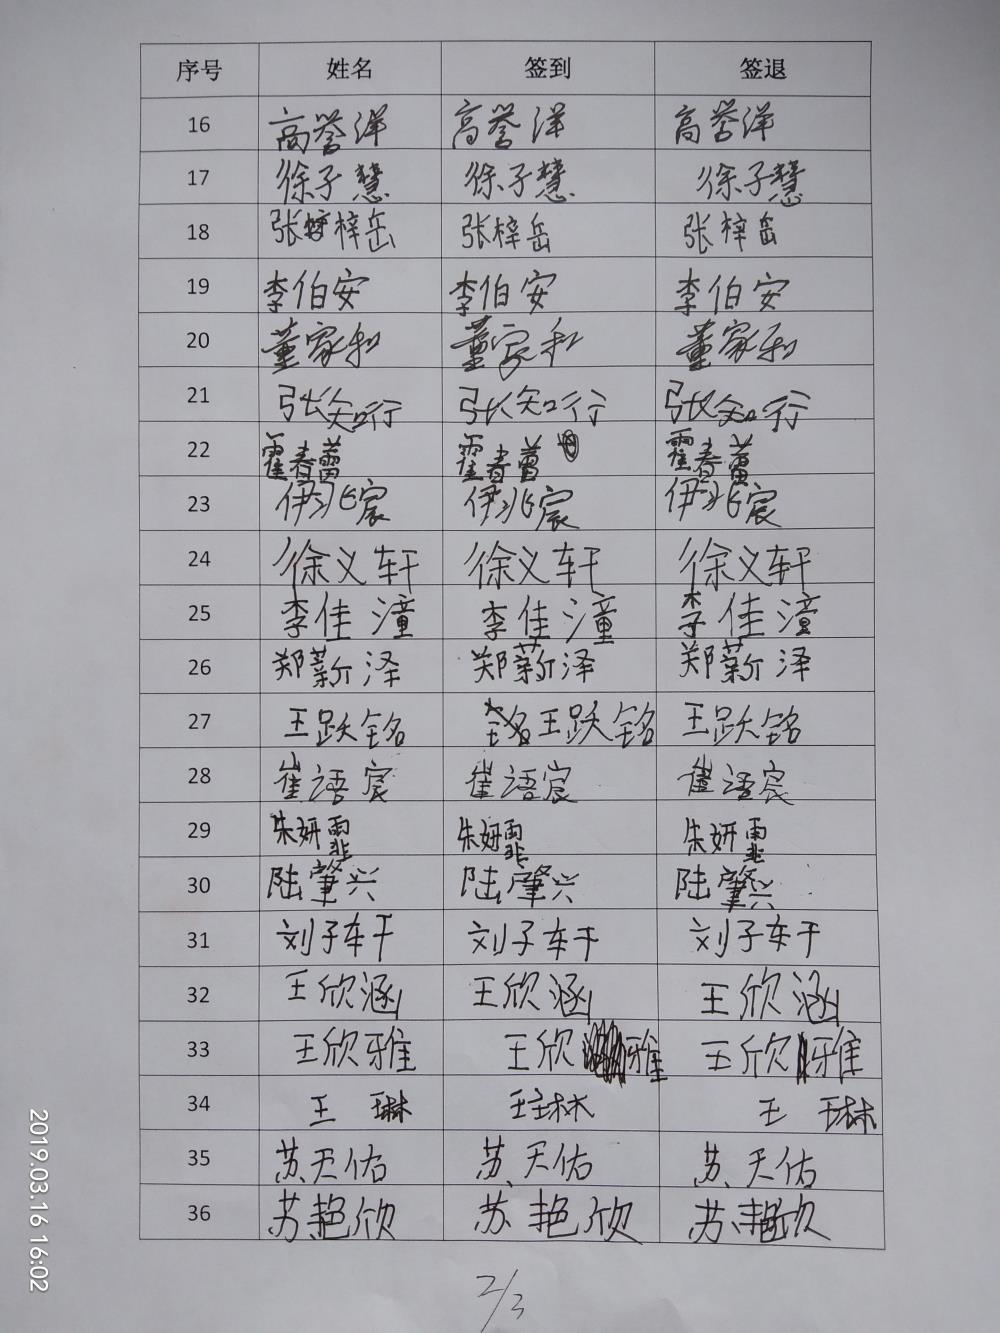 序号 姓名 签到 签退
16 高誉洋 高誉洋 高誉洋
17 徐子慧 徐子慧 徐子慧
18 张梓岳 张梓岳 张梓岳
19 李伯安 李伯安 李伯安
20 董家和 董家和 董家和
21 张知行 张知行 张知行
22 霍春蕾 霍春蕾 霍春蕾
23 伊兆宸 伊兆宸 伊兆宸
24 徐义轩 徐义轩 徐义轩
25 李佳潼 李佳潼 李佳潼
26 郑薪泽 郑薪泽 郑薪泽
27 王跃铭 王跃铭 王跃铭
28 崔语宸 崔语宸 崔语宸
29 朱妍霏 朱妍霏 朱妍霏
30 陆肇兴 陆肇兴 陆肇兴
31 刘子轩 刘子轩 刘子轩
32 王欣涵 王欣涵 王欣涵
33 王欣雅 王欣雅 王欣雅
34 王琳 王琳 王琳
35 苏天佑 苏天佑 苏天佑
36 苏艳欣 苏艳欣 苏艳欣
2/3
2019.03.16 16:02